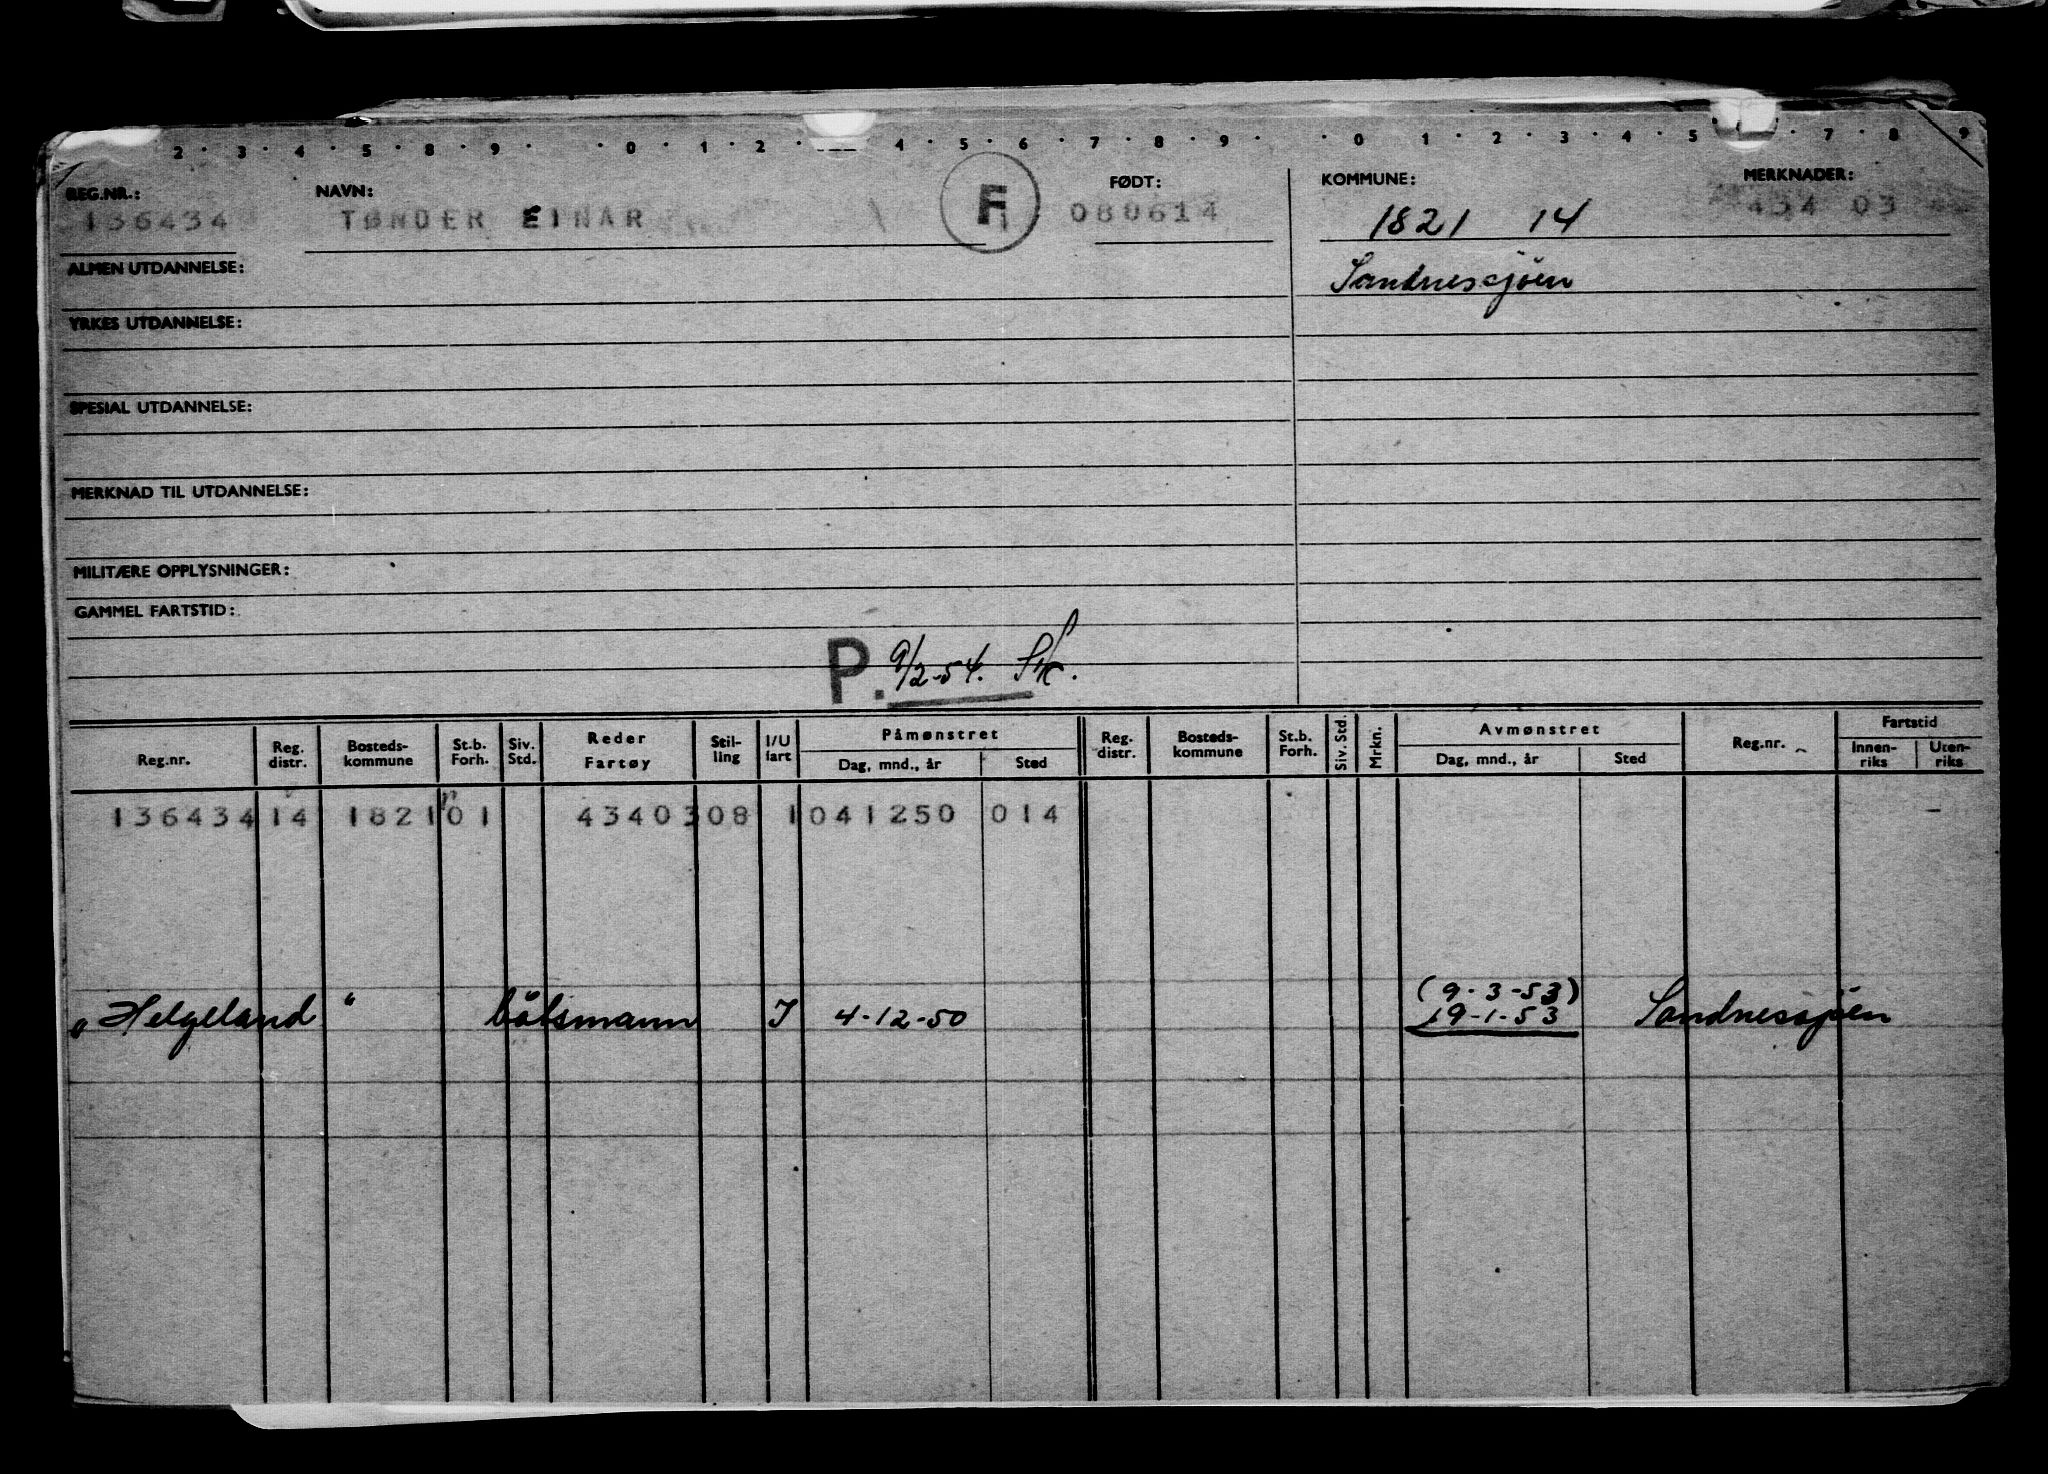 2 · 3 · 4 · 5 · 8 · 9 · · 0 · 1 · 2 · 4 · 5 · 6 · 7 · 8 · 9 · · 0 · 1 · 2 · 3 · 4 · 5 · 7 · 8 · 9
REG.NR.: NAVN: F FØDT: KOMMUNE: MERKNADER:
136434 TØNDER EINAR 1 080614 1821 14 434 03
ALMEN UTDANNELSE: Sandnessjöen
YRKES UTDANNELSE:
SPESIAL UTDANNELSE:
MERKNAD TIL UTDANNELSE:
MILITÆRE OPPLYSNINGER:
GAMMEL FARTSTID:
P. 9/2-54.
Reg.nr. Reg. distr. Bosteds-kommune St.b. Forh. Siv. Std. Reder Fartøy Stil-ling I/U fart Påmønstret Dag, mnd., år Sted Reg. distr. Bosteds-kommune St.b. Forh. Siv. Std. Mrkn. Avmønstret Dag, mnd., år Sted Reg.nr. Fartstid Innen-riks Uten-riks
136434 14 1821 01 43403 08 1 041250 014 -
(9-3-53)
"Helgeland" båtsmann I 4-12-50 19-1-53 Sandnessjöen